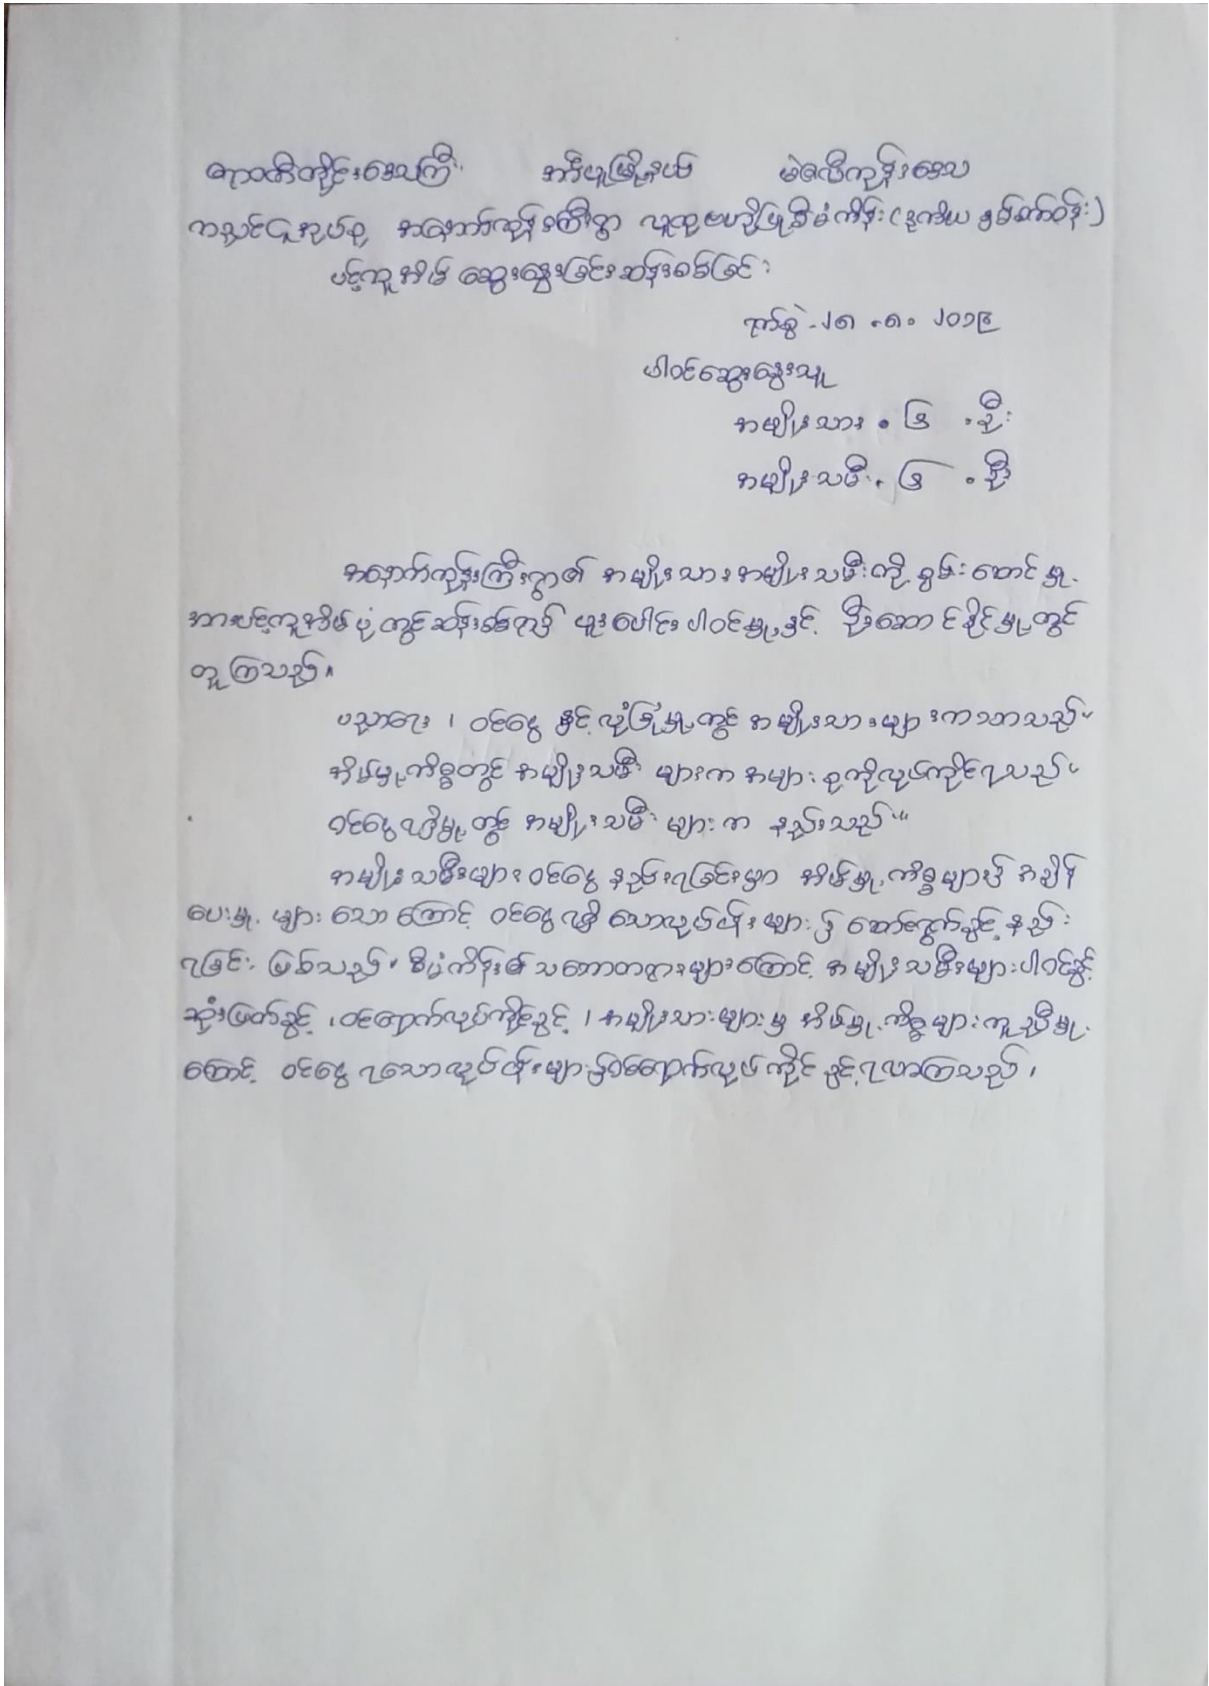 ဧရာဝတီတိုင်းဒေသကြီး အင်္ဂပူမြို့နယ် မဲဇလီကုန်းဒေသ
ကညင်ငူအုပ်စု အနောက်ကုန်းကြီးရွာ လူထုဗဟိုပြုစီမံကိန်း (ဒုတိယ နှစ်ပတ်ဝန်း)
ပင့်ကူအိမ် ဆွေးနွေးခြင်းဆန်းစစ်ခြင်း
ရက်စွဲ - ၂၈ .၈. ၂၀၁၉
ပါဝင်ဆွေးနွေးသူ
အမျိုးသား . ဦး
အမျိုးသမီး . ဦး
အနောက်ကုန်းကြီးရွာ၏ အမျိုးသား အမျိုးသမီးတို့ စွမ်းဆောင်မှု
အားပင့်ကူအိမ်ပုံတွင်ဆန်းစစ်ရာ၌ ပူးပေါင်းပါဝင်မှုနှင့် ဦးဆောင်နိုင်မှုတွင်
တူကြသည်။
ပညာရေး ၊ ဝင်ငွေ နှင့် လုံခြုံမှုတွင် အမျိုးသားများကသာသည်။
အိမ်မှုကိစ္စတွင် အမျိုးသမီး များက အများစုကိုလုပ်ကိုင်ရသည်။
ဝင်ငွေရရှိမှုတွင် အမျိုးသမီး များက နည်းသည်။
အမျိုးသမီးများ ဝင်ငွေ နည်းရခြင်းမှာ အိမ်မှုကိစ္စများ၌ အချိန်
ပေးမှု များသောကြောင့် ဝင်ငွေရရှိသောလုပ်ငန်းများ၌ ဆောင်ရွက်ခွင့် နည်း
ရခြင်း ဖြစ်သည်။ စီမံကိန်း၏ သဘောတရားများကြောင့် အမျိုးသမီးများပါဝင်ခွင့်
ဆုံးဖြတ်ခွင့် ၊ ဝင်ရောက်လုပ်ကိုင်ခွင့် ၊ အမျိုးသားများမှ အိမ်မှုကိစ္စများကူညီမှု
ကြောင့် ဝင်ငွေရသောလုပ်ငန်းများ၌ဝင်ရောက်လုပ်ကိုင်ခွင့်ရလာကြသည် ၊